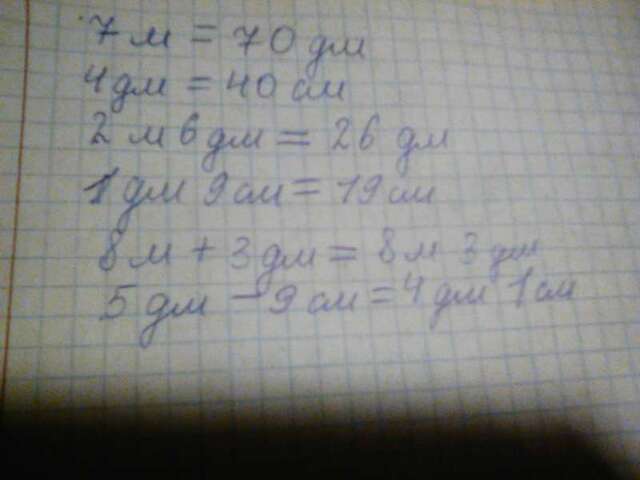 7 м = 70 дм
4 дм = 40 см
2 м 6 дм = 26 дм
1 дм 9 см = 19 см
8 м + 3 дм = 8 м 3 дм
5 дм - 9 см = 4 дм 1 см